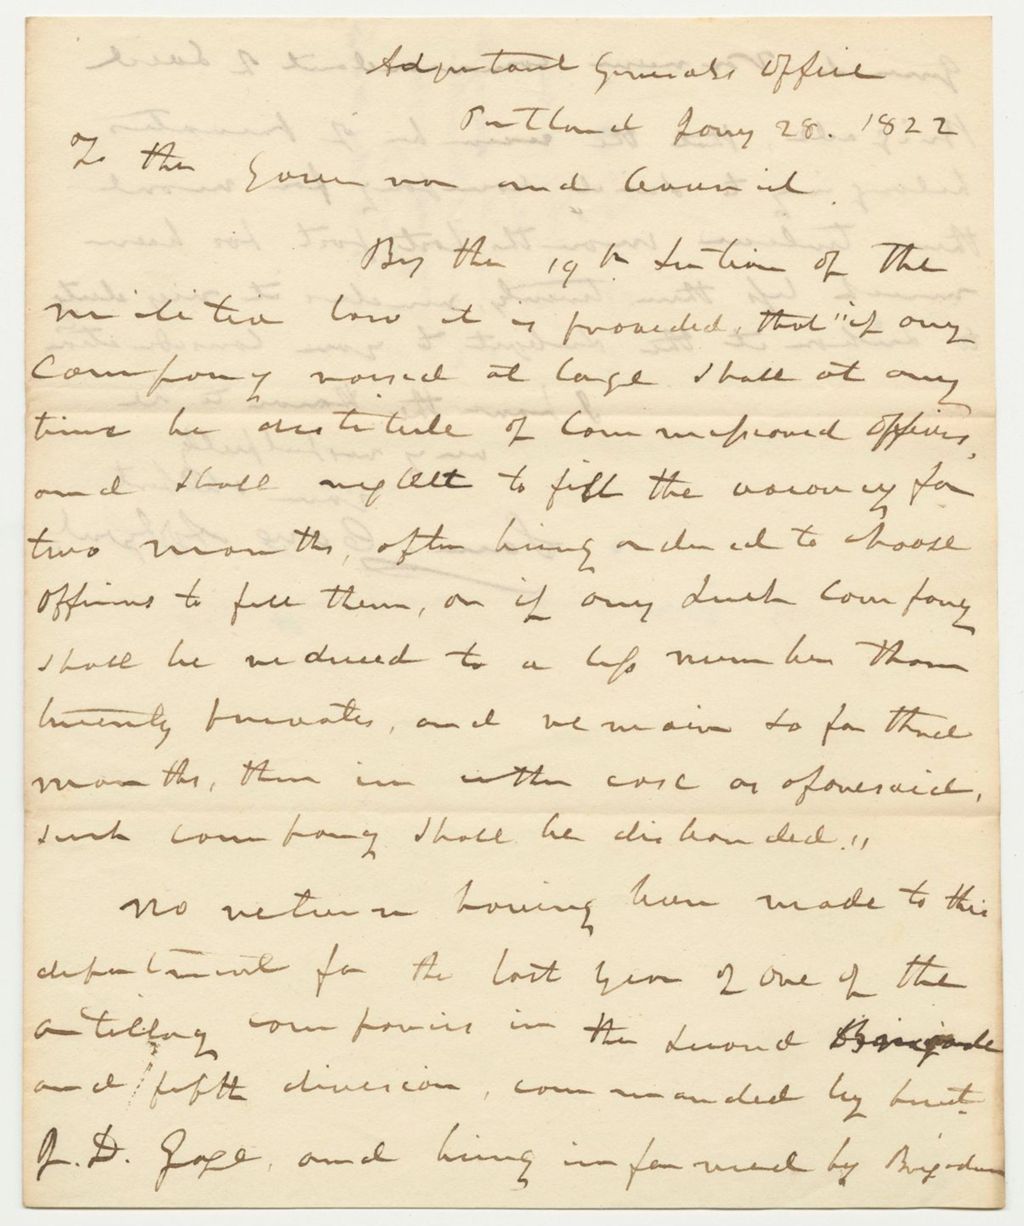 Adjutant Generals Office
Portland Jany 28. 1822
To the Governor and Council.
By the 19th Section of the
militia law it is provided, that "if any
Company raised at large shall at any
time be destitute of Commissioned Officers,
and shall neglect to fill the vacancy for
two months, after being ordered to choose
officers to fill them, or if any such Company
shall be reduced to a less number than
twenty privates, and remain so for three
months, then in either case as aforesaid,
such company shall be disbanded."
No return having been made to this
department for the last year of one of the
artillery companies in the second Brigade
and fifth division, commanded by Lieut.
J. D. Gage, and being informed by Brigadier